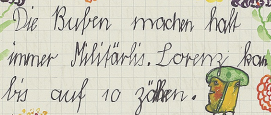 Die Buben machen halt
immer Militärlis. Lorenz kan
bis auf 10 zählen.